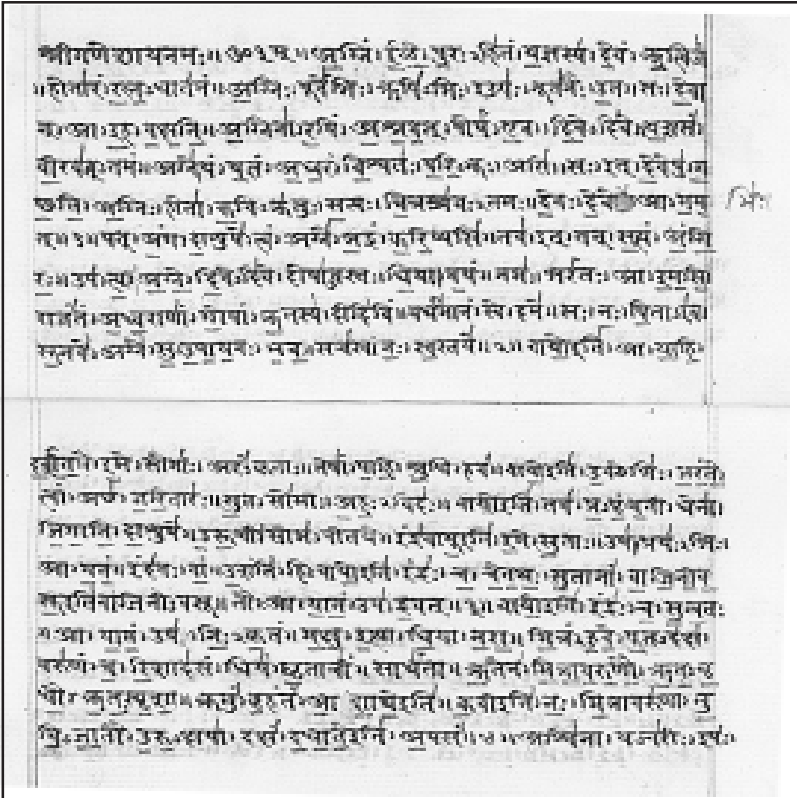 श्रीगणेशायनमः॥ अग्निं।ईळे।पुरःऽहितं।यज्ञस्य।देवं।ऋत्विजं
॥होतारं।रत्नऽधातमं॥अग्निः।पूर्वेभिः।ऋषिऽभिः।ईड्यः।नूतनैः।उत।सः।देवा
न्।आ।इह।वक्षति॥अग्निना।रयिं।अश्नवत्।पोषं।एव।दिवेऽदिवे।यशसं।
वीरवत्ऽतमं॥अग्ने।यं।यज्ञं।अध्वरं।विश्वतः।परिऽभूः।असि।सः।इत्।देवेषु।ग
च्छति॥अग्निः।होता।कविऽक्रतुः।सत्यः।चित्रश्रवःऽतमः।देवः।देवे आ।गम भिः
त्॥१॥यत्।अंग।दाशुषे।त्वं।अग्ने।भद्रं।करिष्यसि।तव।इत्।तत्।सत्यं।अंगि
रः॥उप।त्वा।अग्ने।दिवेऽदिवे।दोषाऽवस्तः।धिया।वयं।नमः।भरंतः।आ।इमसि॥
राजंतं।अध्वराणां।गोपां।ऋतस्य।दीदिविं।वर्धमानं।स्वे।दमे॥सः।नः।पिताऽइव।
सूनवे।अग्ने।सुऽउपायनः।भव।सचस्व।नः।स्वस्तये॥२॥वायोइति।आ।याहि।
दर्शत।इमे।सोमाः।अरंऽकृताः।तेषां।पाहि।श्रुधि।हवं॥वायोइति।उक्थेभिः।जरंते।
त्वां।अच्छ।जरितारः।सुतऽसोमाः।अहःऽविदः॥वायोइति।तव।प्रऽपृंचती।धेना।
जिगाति।दाशुषे।उरूची।सोमऽपीतये॥इंद्रवायूइति।इमे।सुताः।उप।प्रयःऽभिः।
आ।गतं।इंदवः।वां।उशंति।हि॥वायोइति।इंद्रः।च।चेतथः।सुतानां।वाजिनीव
सूइतिवाजिनीऽवसू।तौ।आ।यातं।उप।द्रवत्॥३॥वायोइति।इंद्रः।च।सुन्वतः
॥आ।यातं।उप।निःऽकृतं।मक्षु।इत्था।धिया।नरा॥मित्रं।हुवे।पूतऽदक्षं।
वरुणं।च।रिशादसं।धियं।घृताचीं।साधंता॥ऋतेन।मित्रावरुणौ।ऋतऽवृ
धौ।ऋतऽस्पृशा।क्रतुं।बृहंतं।आ शाथेइति॥कवीइति।नः।मित्रावरुणा।तु
विऽजातौ।उरुऽक्षया।दक्षं।दधातेइति।अपसं॥४॥अश्विना।यज्वरीः।इषः।